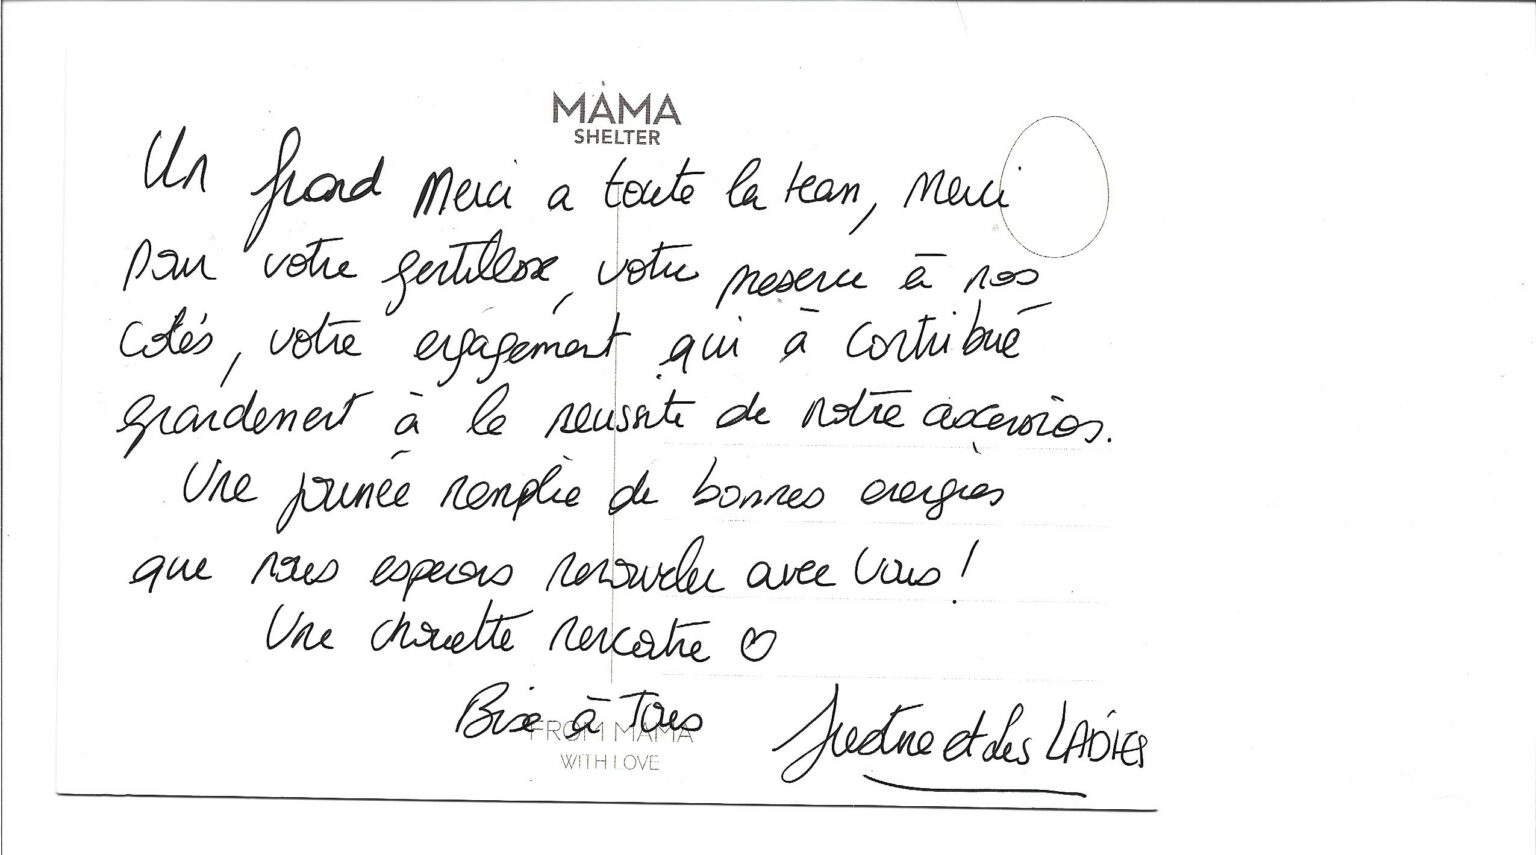 MAMA
SHELTER
Un grand Merci a toute la team, Merci
pour votre gentillesse, votre présence à nos
cotés, votre engagement qui à contribué
grandement à la reussite de notre
Une journée remplie de bonnes energies
que nous esperons renouveler avec vous !
Une chouette rencontre ♡
Bise à Tous
FROM MAMA
WITH LOVE
Justine et les LADIES